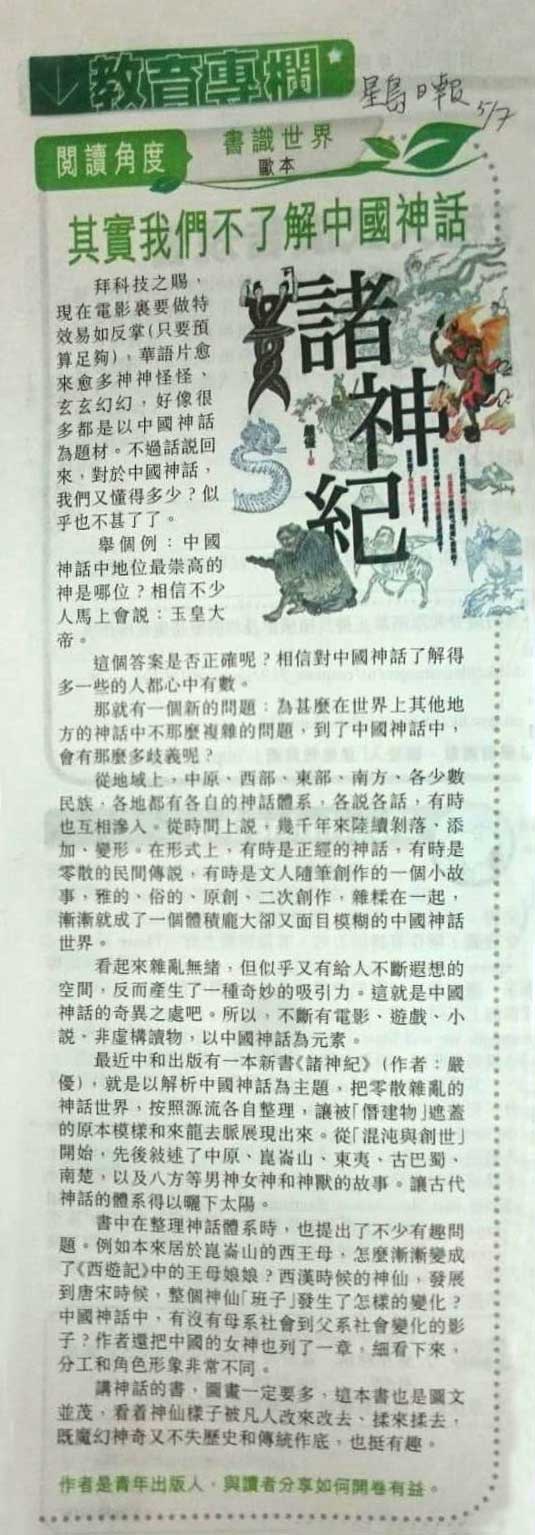 教育專欄
星島日報 5/7
閱讀角度
書識世界
歐本
其實我們不了解中國神話
拜科技之賜，
現在電影裏要做特
效易如反掌(只要預
算足夠)，華語片愈
來愈多神神怪怪、
玄玄幻幻，好像很
多都是以中國神話
為題材。不過話説回
來，對於中國神話，
我們又懂得多少？似
乎也不甚了了。
舉個例：中國
神話中地位最崇高的
神是哪位？相信不少
人馬上會説：玉皇大
帝。
諸神紀
這個答案是否正確呢？相信對中國神話了解得
多一些的人都心中有數。
那就有一個新的問題：為甚麼在世界上其他地
方的神話中不那麼複雜的問題，到了中國神話中，
會有那麼多歧義呢？
從地域上，中原、西部、東部、南方、各少數
民族，各地都有各自的神話體系，各説各話，有時
也互相滲入。從時間上説，幾千年來陸續剝落、添
加、變形。在形式上，有時是正經的神話，有時是
零散的民間傳説，有時是文人隨筆創作的一個小故
事，雅的、俗的、原創、二次創作，雜糅在一起，
漸漸就成了一個體積龐大卻又面目模糊的中國神話
世界。
看起來雜亂無緒，但似乎又有給人不斷遐想的
空間，反而產生了一種奇妙的吸引力。這就是中國
神話的奇異之處吧。所以，不斷有電影、遊戲、小
説、非虛構讀物，以中國神話為元素。
最近中和出版有一本新書《諸神紀》(作者：嚴
優)，就是以解析中國神話為主題，把零散雜亂的
神話世界，按照源流各自整理，讓被「僭建物」遮蓋
的原本模樣和來龍去脈展現出來。從「混沌與創世」
開始，先後敍述了中原、崑崙山、東夷、古巴蜀、
南楚，以及八方等男神女神和神獸的故事。讓古代
神話的體系得以曬下太陽。
書中在整理神話體系時，也提出了不少有趣問
題。例如本來居於崑崙山的西王母，怎麼漸漸變成
了《西遊記》中的王母娘娘？西漢時候的神仙，發展
到唐宋時候，整個神仙「班子」發生了怎樣的變化？
中國神話中，有沒有母系社會到父系社會變化的影
子？作者還把中國的女神也列了一章，細看下來，
分工和角色形象非常不同。
講神話的書，圖畫一定要多，這本書也是圖文
並茂，看着神仙樣子被凡人改來改去、揉來揉去，
既魔幻神奇又不失歷史和傳統作底，也挺有趣。
作者是青年出版人，與讀者分享如何開卷有益。